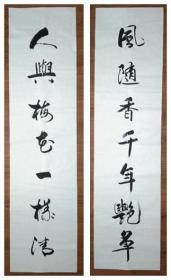 風随香千年艷草
人與梅花一樣清